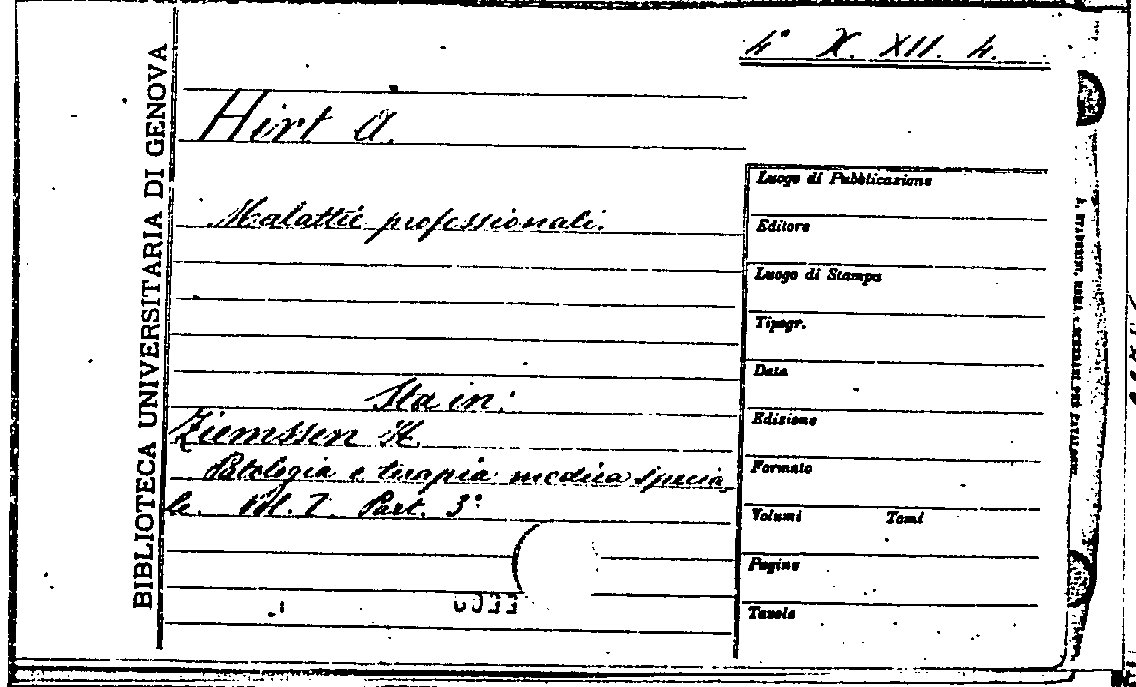 BIBLIOTECA UNIVERSITARIA DI GENOVA
4° X. XII. 4.
Hirt A.
Malattie professionali.
Sta in:
Ziemssen H.
Patologia e terapia medica specia_
le. Vol. I. Part. 3ª
Luogo di Pubblicazione
Editore
Luogo di Stampa
Tipogr.
Data
Edizione
Formato
Volumi Tomi
Pagine
Tavole